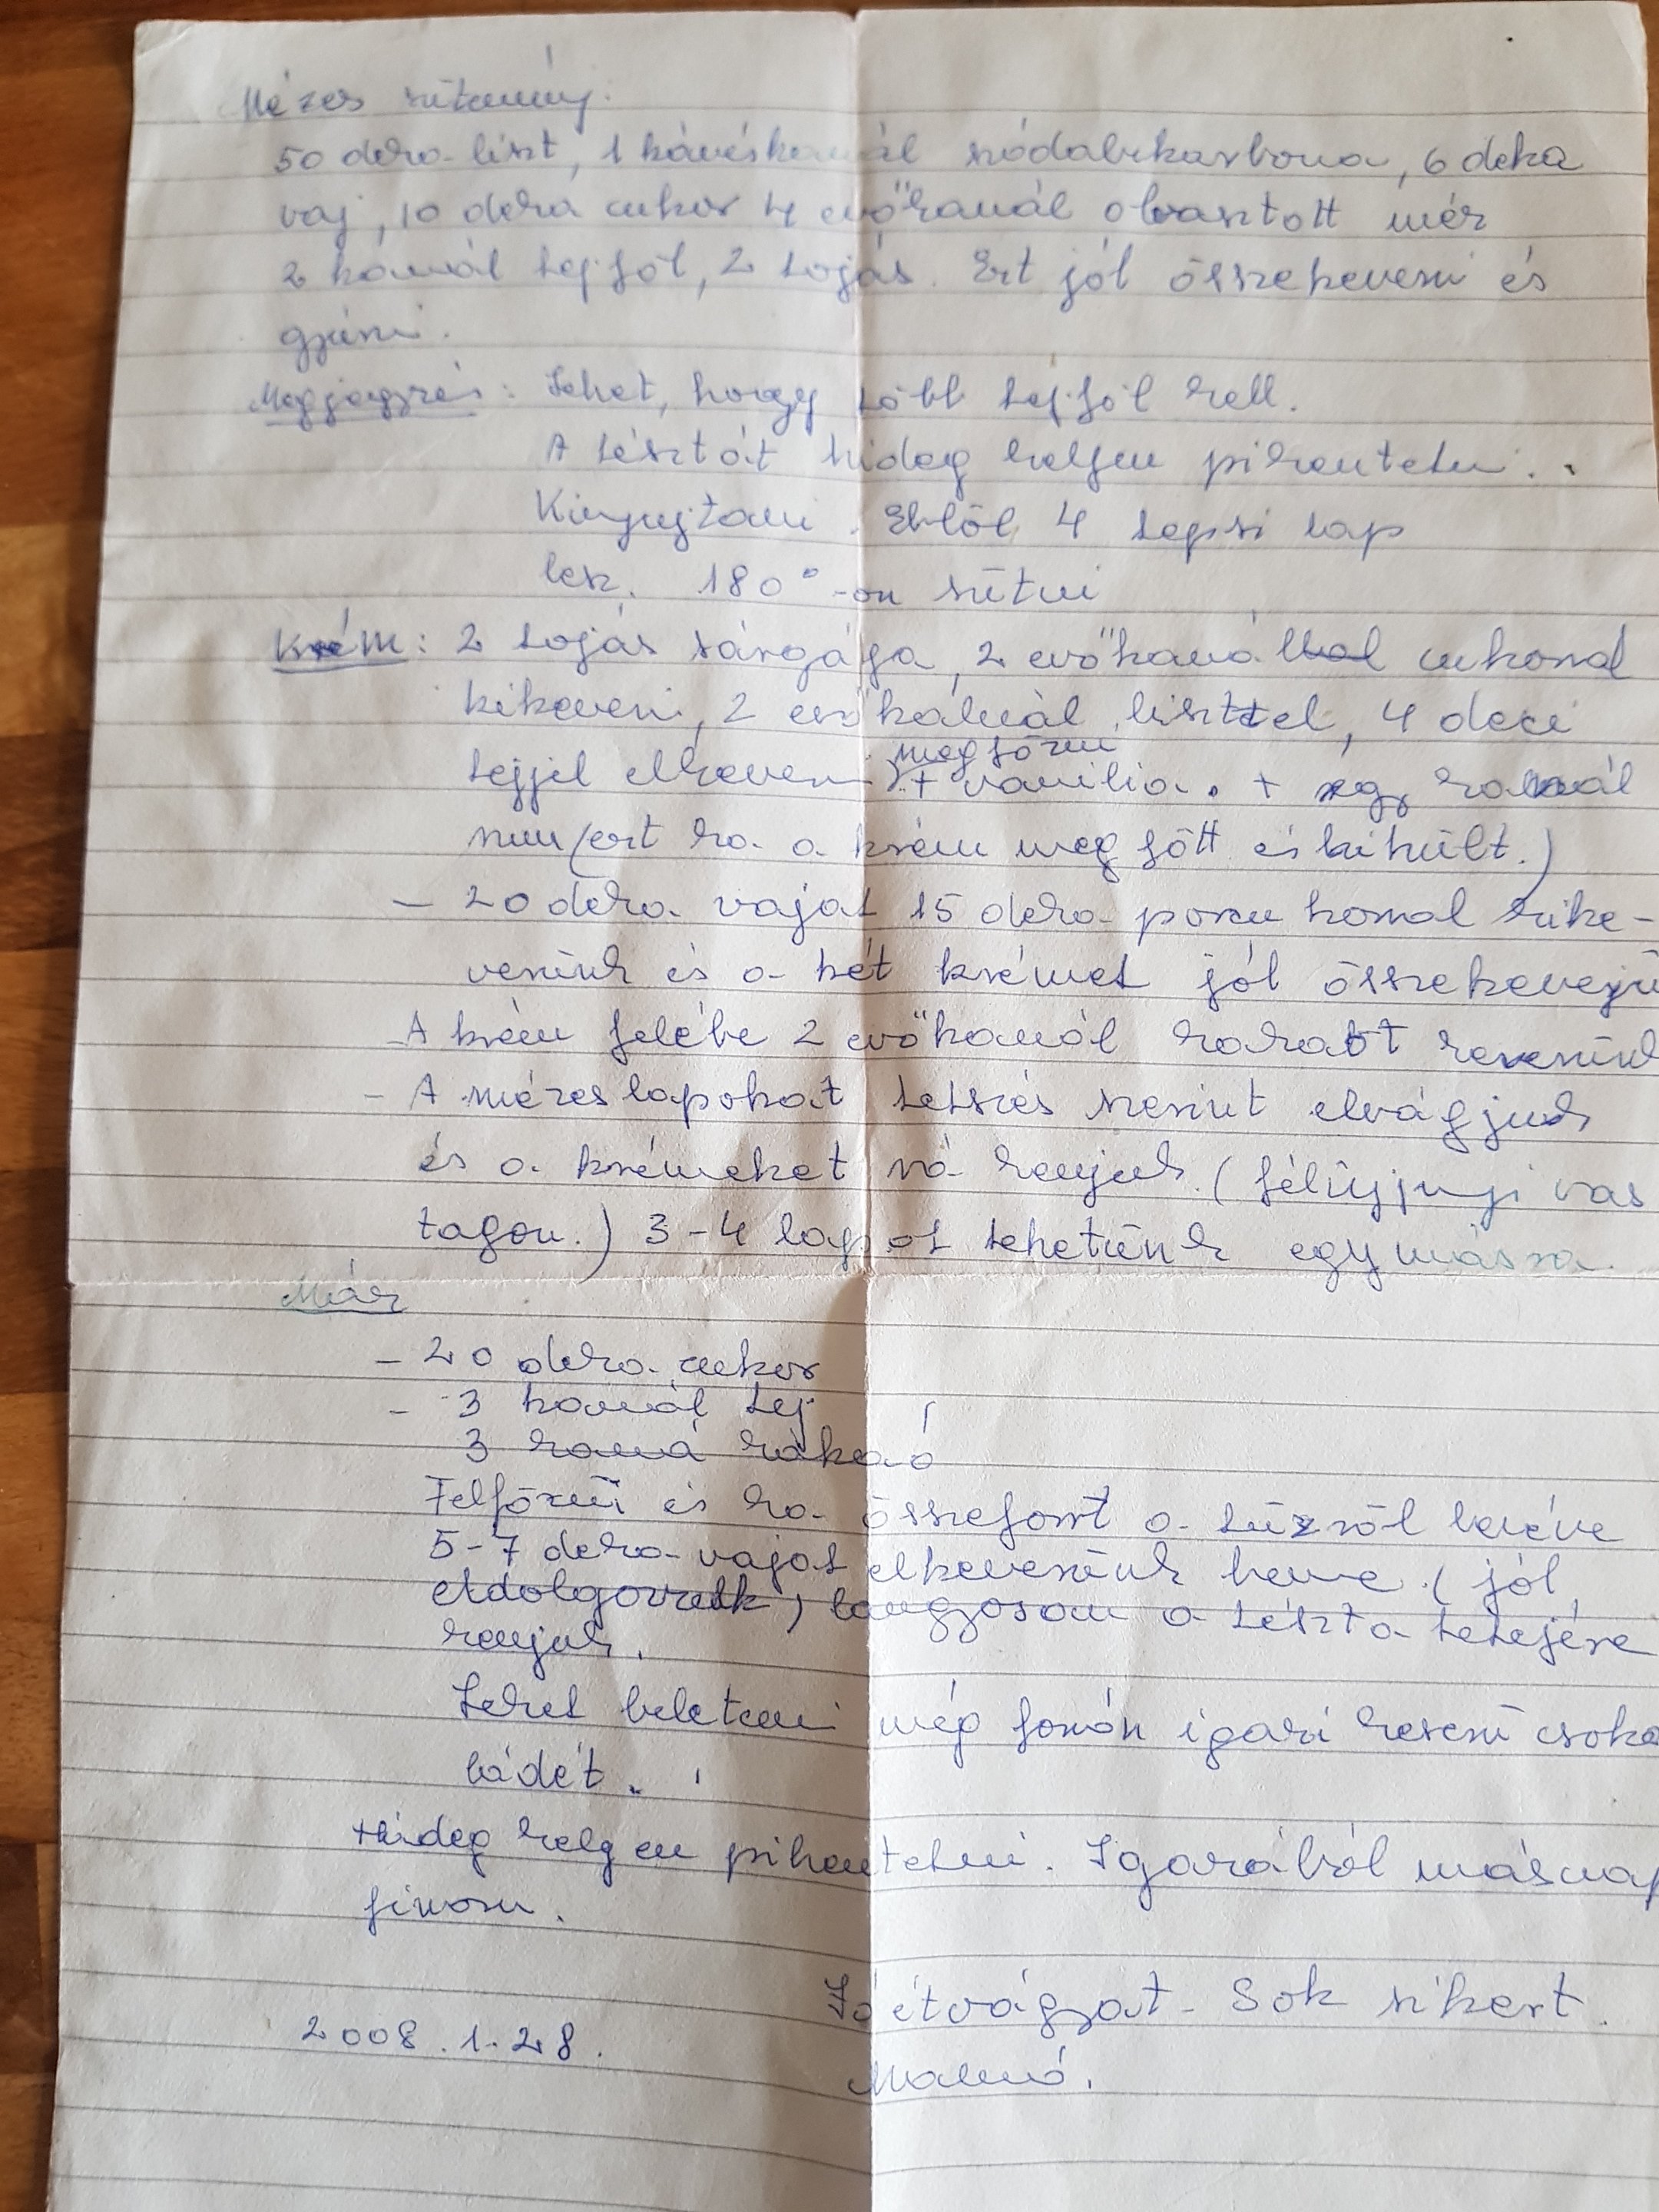 Mézes sütemény.
50 deka liszt, 1 kávéskanál szódabikarbona, 6 deka
vaj, 10 deka cukor 4 evőkanál olvasztott méz
2 kanál tejföl, 2 tojás. Ezt jól összekeverni és
gyúrni.
Megjegyzés: Lehet, hogy több tejföl kell.
A tésztát hideg helyen pihentetni.
Kinyujtani. Ebből 4 tepsi lap
lesz. 180°-on sütni
Krém: 2 tojás sárgája, 2 evőkanál cukorral
kikeverni, 2 evőkanál liszttel, 4 deci
megfőzni
tejjel elkeverni + vanilia. + egy kanál
rum (ezt ha a krém meg főtt és kihült.)
- 20 deka vajat 15 deka porcukorral kike-
verünk és a két krémet jól összekeverjü
- A krém felébe 2 evőkanál kakaót keverünk
- A mézes lapokat tetszés szerint elvágjuk
és a krémeket rá kenjük. (félújjnyi vas
tagon.) 3-4 lapot tehetünk egymásra.
Máz
- 20 deka cukor
- 3 kanál tej
3 kaná kakaó
Felfőzni és ha összeforrt a tűzről levéve
5-7 deka vajat elkeverünk benne. (jól
eldolgozzuk) langyosan a tészta tetejére
kenjük.
Lehet beletenni még forrón igazi keserű csoko
ládét.
Hideg helyen pihentetni. Igazából másnap
finom.
Jó étvágyat - Sok sikert.
2008.1.28.
Mamó.